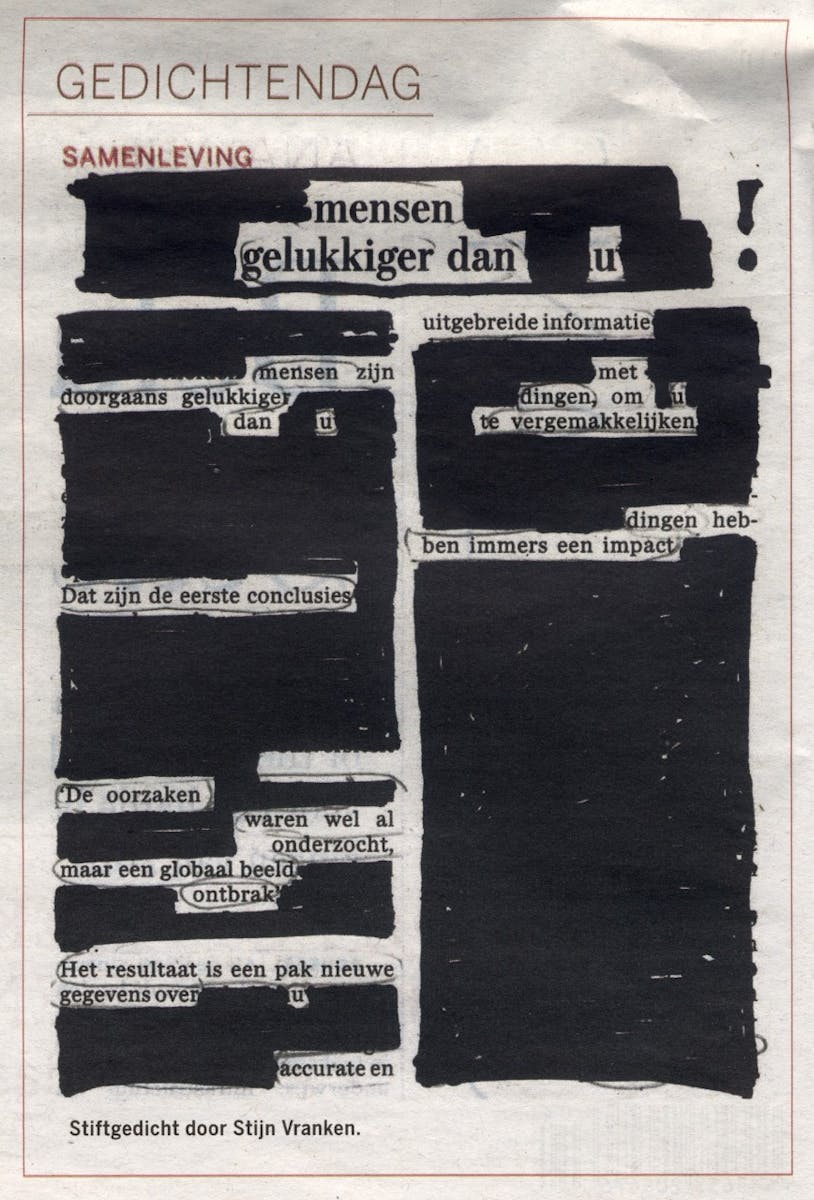 GEDICHTENDAG
SAMENLEVING
mensen
gelukkiger dan u !
mensen zijn
doorgaans gelukkiger
dan u
Dat zijn de eerste conclusies
‘De oorzaken
waren wel al
onderzocht,
maar een globaal beeld
ontbrak’
Het resultaat is een pak nieuwe
gegevens over u
accurate en
uitgebreide informatie
met
dingen, om u
te vergemakkelijken
dingen heb-
ben immers een impact
Stiftgedicht door Stijn Vranken.